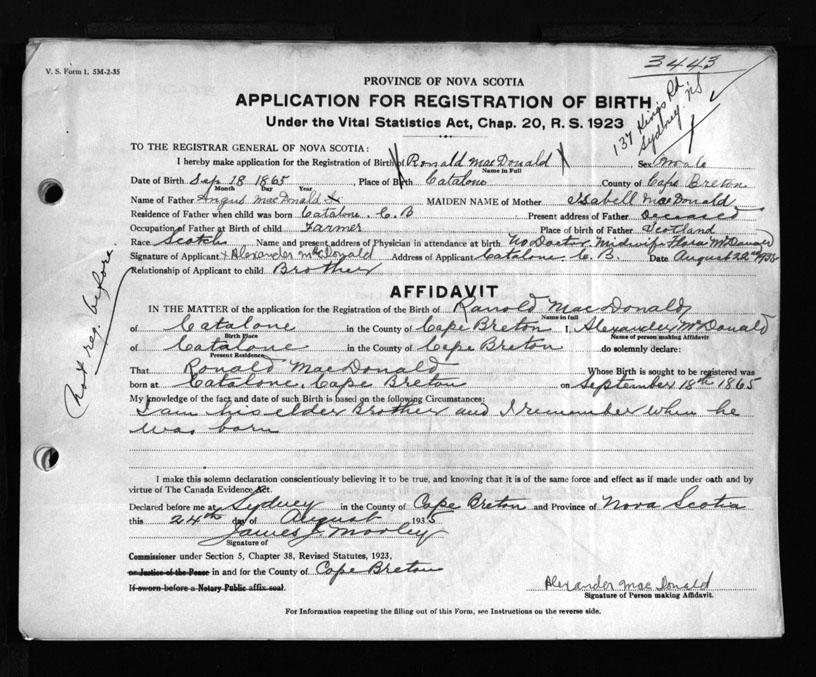 V. S. Form 1. 5M-2-35
3443
PROVINCE OF NOVA SCOTIA
APPLICATION FOR REGISTRATION OF BIRTH
137 Kings Rd
Sydney. NS
Under the Vital Statistics Act, Chap. 20, R. S. 1923
TO THE REGISTRAR GENERAL OF NOVA SCOTIA:
I hereby make application for the Registration of Birth of Ronald MacDonald X Sex Male
Name in Full
Date of Birth Sep 18 1865, Place of Birth Catalone County of Cape Breton
Month Day Year
Name of Father Angus MacDonald X MAIDEN NAME of Mother Isabell MacDonald
Residence of Father when child was born Catalone. C. B Present address of Father Deceased
Occupation of Father at Birth of child Farmer Place of birth of Father Scotland
Race Scotch Name and present address of Physician in attendance at birth No Doctor, Midwife Flora McDonald
Signature of Applicant x Alexander McDonald Address of Applicant Catalone, C. B. Date August 22nd 1935
Relationship of Applicant to child Brother
Not reg. before.
AFFIDAVIT
IN THE MATTER of the application for the Registration of the Birth of Ranold MacDonald,
Name in full
of Catalone in the County of Cape Breton I, Alexander McDonald
Birth Place Name of person making Affidavit
of Catalone in the County of Cape Breton do solemnly declare:
Present Residence
That Ronald MacDonald Whose Birth is sought to be registered was
born at Catalone, Cape Breton on September 18th 1865
My knowledge of the fact and date of such Birth is based on the following Circumstances:
I am his elder Brother and I remember when he
was born
I make this solemn declaration conscientiously believing it to be true, and knowing that it is of the same force and effect as if made under oath and by
virtue of The Canada Evidence Act.
Declared before me at Sydney in the County of Cape Breton and Province of Nova Scotia
this 24th day of August 1935
James J. Morley
Signature of
Commissioner under Section 5, Chapter 38, Revised Statutes, 1923,
or Justice of the Peace in and for the County of Cape Breton
If sworn before a Notary Public affix seal.
Alexander MacDonald
Signature of Person making Affidavit.
For Information respecting the filling out of this Form, see Instructions on the reverse side.